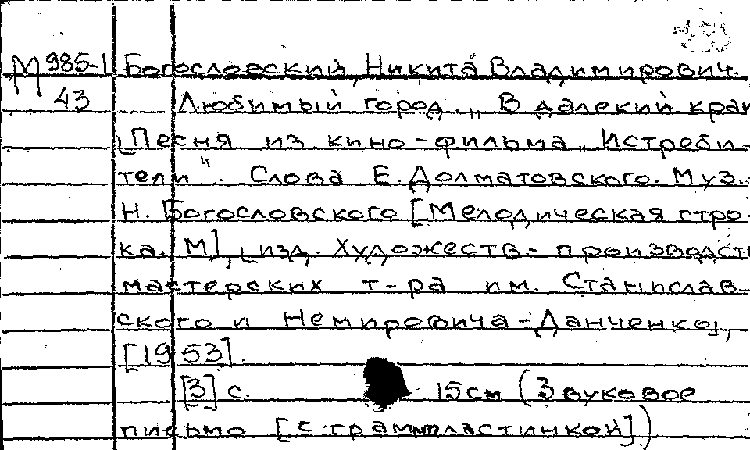 М 985-1 Богословский, Никита Владимирович.
43 Любимый город. „В далекий край
[Песня из кино-фильма „Истреби-
тели". Слова Е. Долматовского. Муз.
Н. Богословского [Мелодическая стро-
ка. М], [изд. Художеств.- производств
мастерских т-ра им. Станислав-
ского и Немировича-Данченко],
[1953].
[3] с. 15см (Звуковое
письмо [с граммпластинкой])